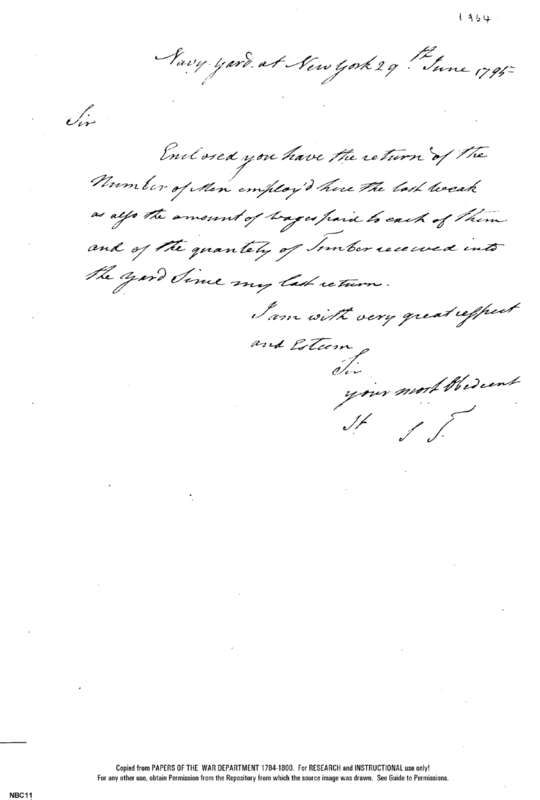 1964
Navy Yard at New York 29th June 1795
Sir
Enclosed you have the return of the
Number of Men employ'd here the last weak
as also the amount of wages paid to each of them
and of the quantety of Timber received into
the yard Since my last return.
I am with very great respect
and Esteem
Sir
your most Obedient
St
J T.
Copied from PAPERS OF THE WAR DEPARTMENT 1784-1800. For RESEARCH and INSTRUCTIONAL use only!
For any other use, obtain Permission from the Repository from which the source image was drawn. See Guide to Permissions.
NBC11